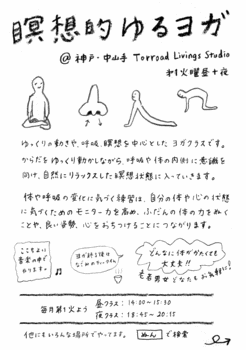 瞑想的ゆるヨガ
@ 神戸・中山手 Torroad Livings Studio
第1火曜昼＋夜
ゆっくりの動きや、呼吸、瞑想を中心とした ヨガクラスです。
からだをゆっくり動かしながら、呼吸や体の内側に意識を
向け、自然にリラックスした瞑想状態に入っていきます。
体や呼吸の変化に気づく練習は、自分の体や心の状態
に気づくためのモニター力を高め、ふだんの体の力をぬく
ことや、良い姿勢、心をおちつけることにつながります。
ここちよい
音楽の中で
やります。
ヨガ終了後は
なごみのティータイム
どんなに体がかたくても
大丈夫!!
老若男女どなたもお気軽に!
毎月第1火よう
昼クラス： 14:00 – 15:30
夜クラス： 18:45 – 20:15
他にもいろんな場所でやってます。
で検索